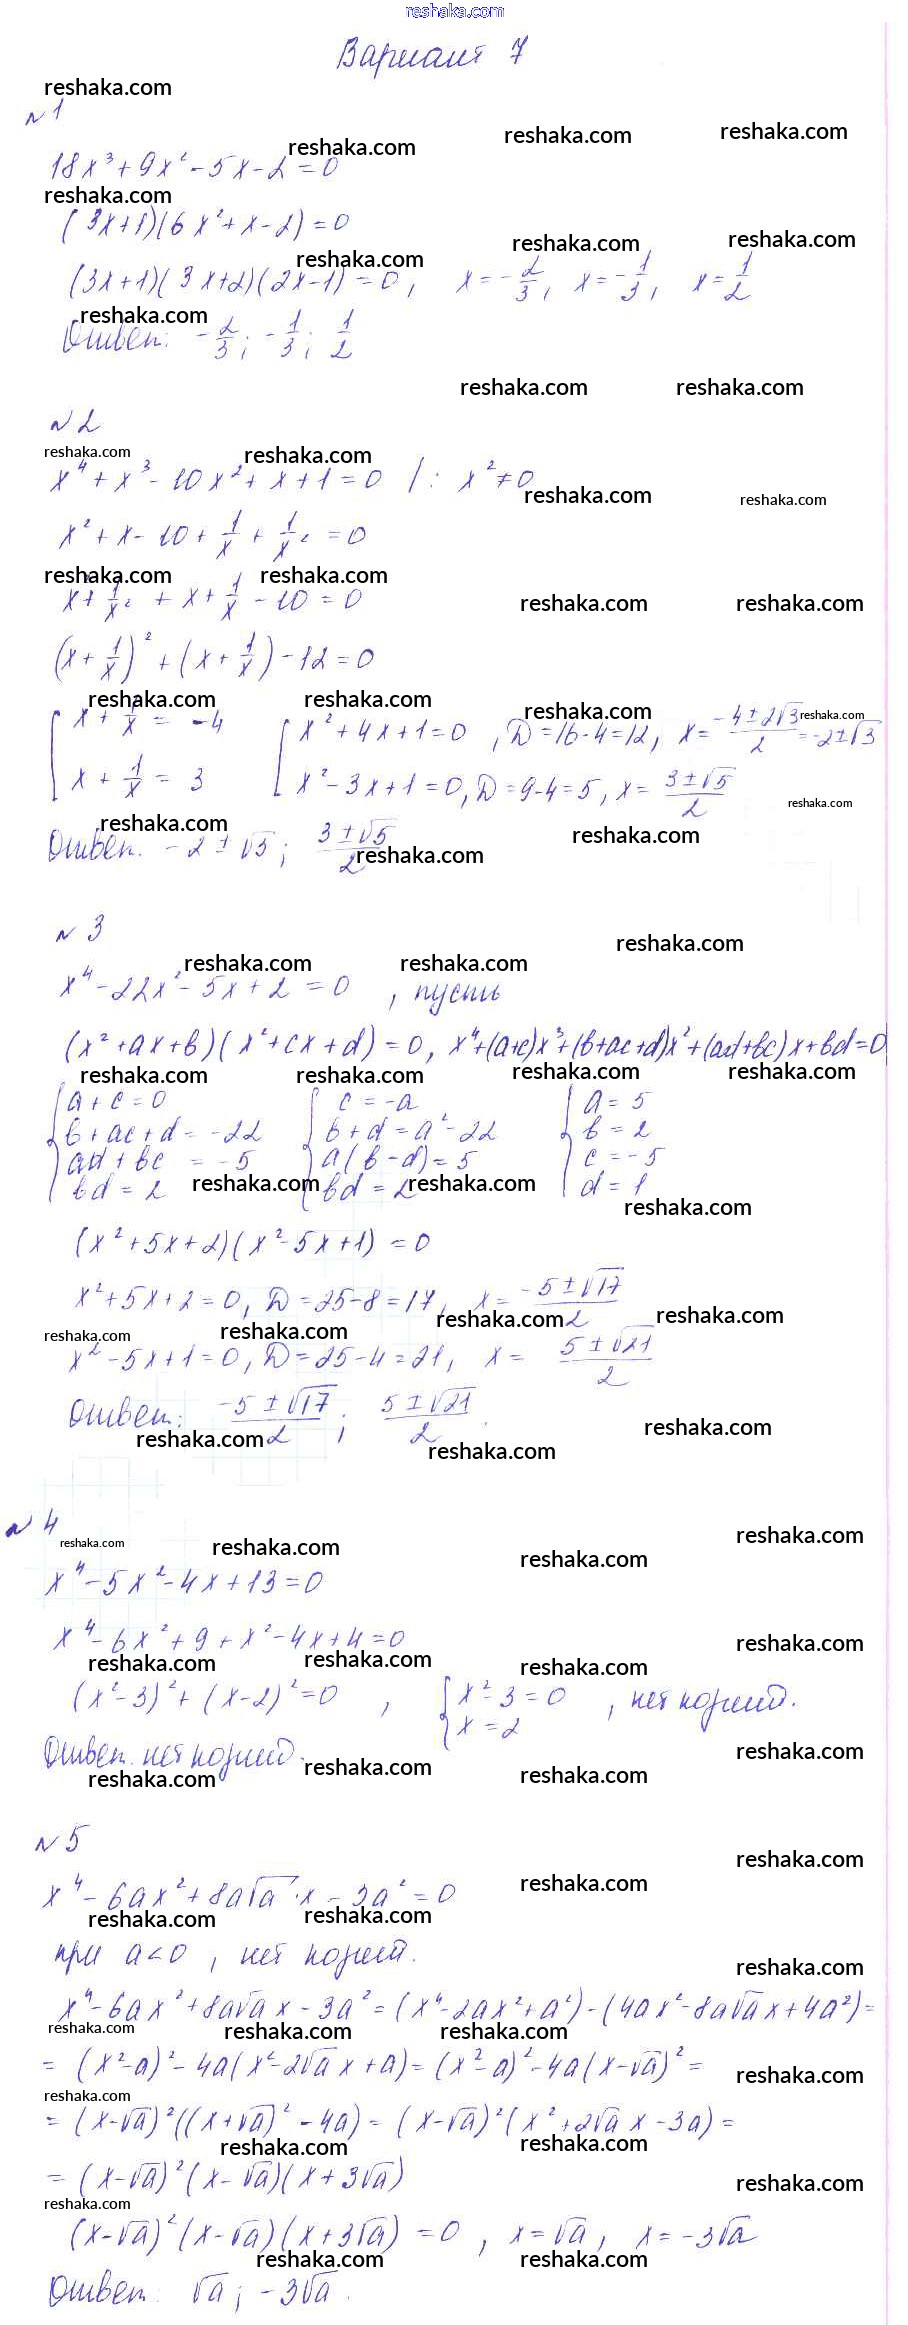 reshaka.com
Вариант 7
№1
18x³ + 9x² - 5x - 2 = 0
(3x+1)(6x² + x - 2) = 0
(3x+1)(3x+2)(2x-1) = 0, x = -2/3, x = -1/3, x = 1/2
Ответ: -2/3; -1/3; 1/2
№2
x⁴ + x³ - 10x² + x + 1 = 0 /: x² ≠ 0
x² + x - 10 + 1/x + 1/x² = 0
x² + 1/x² + x + 1/x - 10 = 0
(x + 1/x)² + (x + 1/x) - 12 = 0
[ x + 1/x = -4 [ x² + 4x + 1 = 0, D = 16-4 = 12, x = (-4±2√3)/2 = -2±√3
x + 1/x = 3 x² - 3x + 1 = 0, D = 9-4 = 5, x = (3±√5)/2
Ответ. -2 ± √3; (3±√5)/2
№3
x⁴ - 22x² - 5x + 2 = 0, пусть
(x² + ax + b)(x² + cx + d) = 0, x⁴+(a+c)x³+(b+ac+d)x²+(ad+bc)x+bd=0
{ a + c = 0 { c = -a { a = 5
b + ac + d = -22 b + d = a² - 22 b = 2
ad + bc = -5 a(b-d) = 5 c = -5
bd = 2 bd = 2 d = 1
(x² + 5x + 2)(x² - 5x + 1) = 0
x² + 5x + 2 = 0, D = 25-8 = 17, x = (-5±√17)/2
x² - 5x + 1 = 0, D = 25-4 = 21, x = (5±√21)/2
Ответ: (-5±√17)/2; (5±√21)/2.
№4
x⁴ - 5x² - 4x + 13 = 0
x⁴ - 6x² + 9 + x² - 4x + 4 = 0
(x²-3)² + (x-2)² = 0, { x² - 3 = 0, нет корней.
x = 2
Ответ. нет корней.
№5
x⁴ - 6ax² + 8a√a · x - 3a² = 0
при a < 0, нет корней.
x⁴ - 6ax² + 8a√a x - 3a² = (x⁴ - 2ax² + a²) - (4ax² - 8a√a x + 4a²) =
= (x²-a)² - 4a(x² - 2√a x + a) = (x²-a)² - 4a(x-√a)² =
= (x-√a)²((x+√a)² - 4a) = (x-√a)²(x² + 2√a x - 3a) =
= (x-√a)²(x-√a)(x+3√a)
(x-√a)²(x-√a)(x+3√a) = 0, x = √a, x = -3√a
Ответ: √a; -3√a.